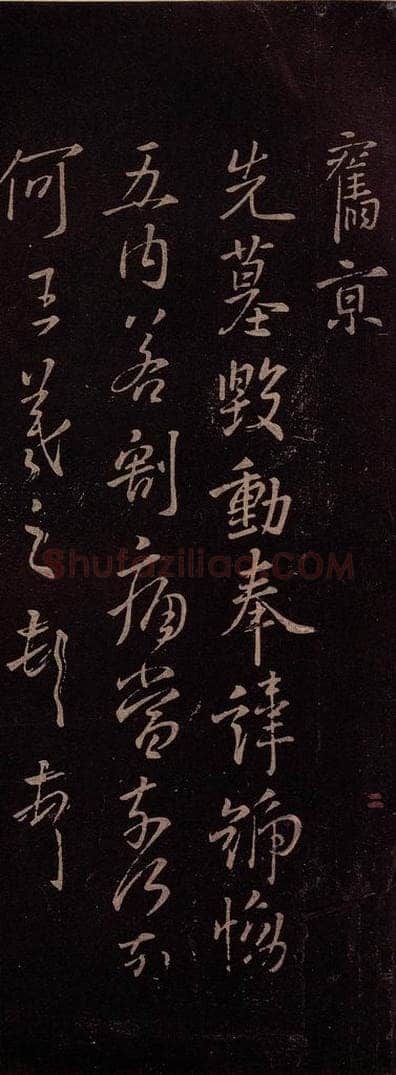 舊京
先墓毀動奉諱號慟
五内若割痛當奈何奈
何王羲之頓首
二
Shufaziliao.COM